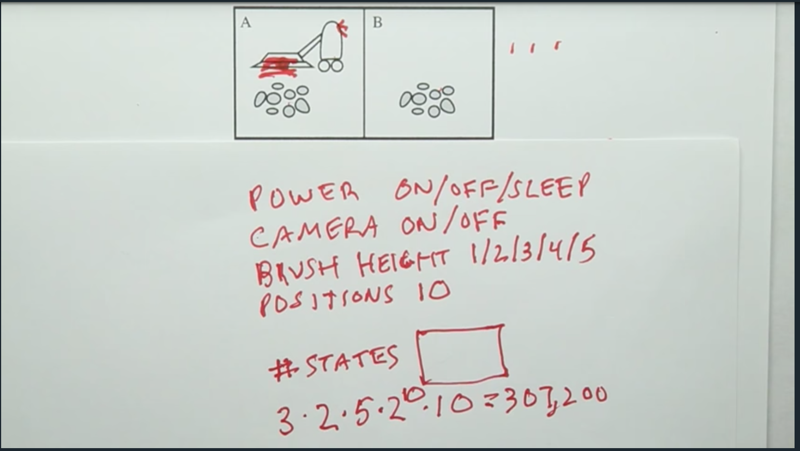 A
B
POWER ON/OFF/SLEEP
CAMERA ON/OFF
BRUSH HEIGHT 1/2/3/4/5
POSITIONS 10
# STATES
3 · 2 · 5 · 2¹⁰ · 10 = 307,200